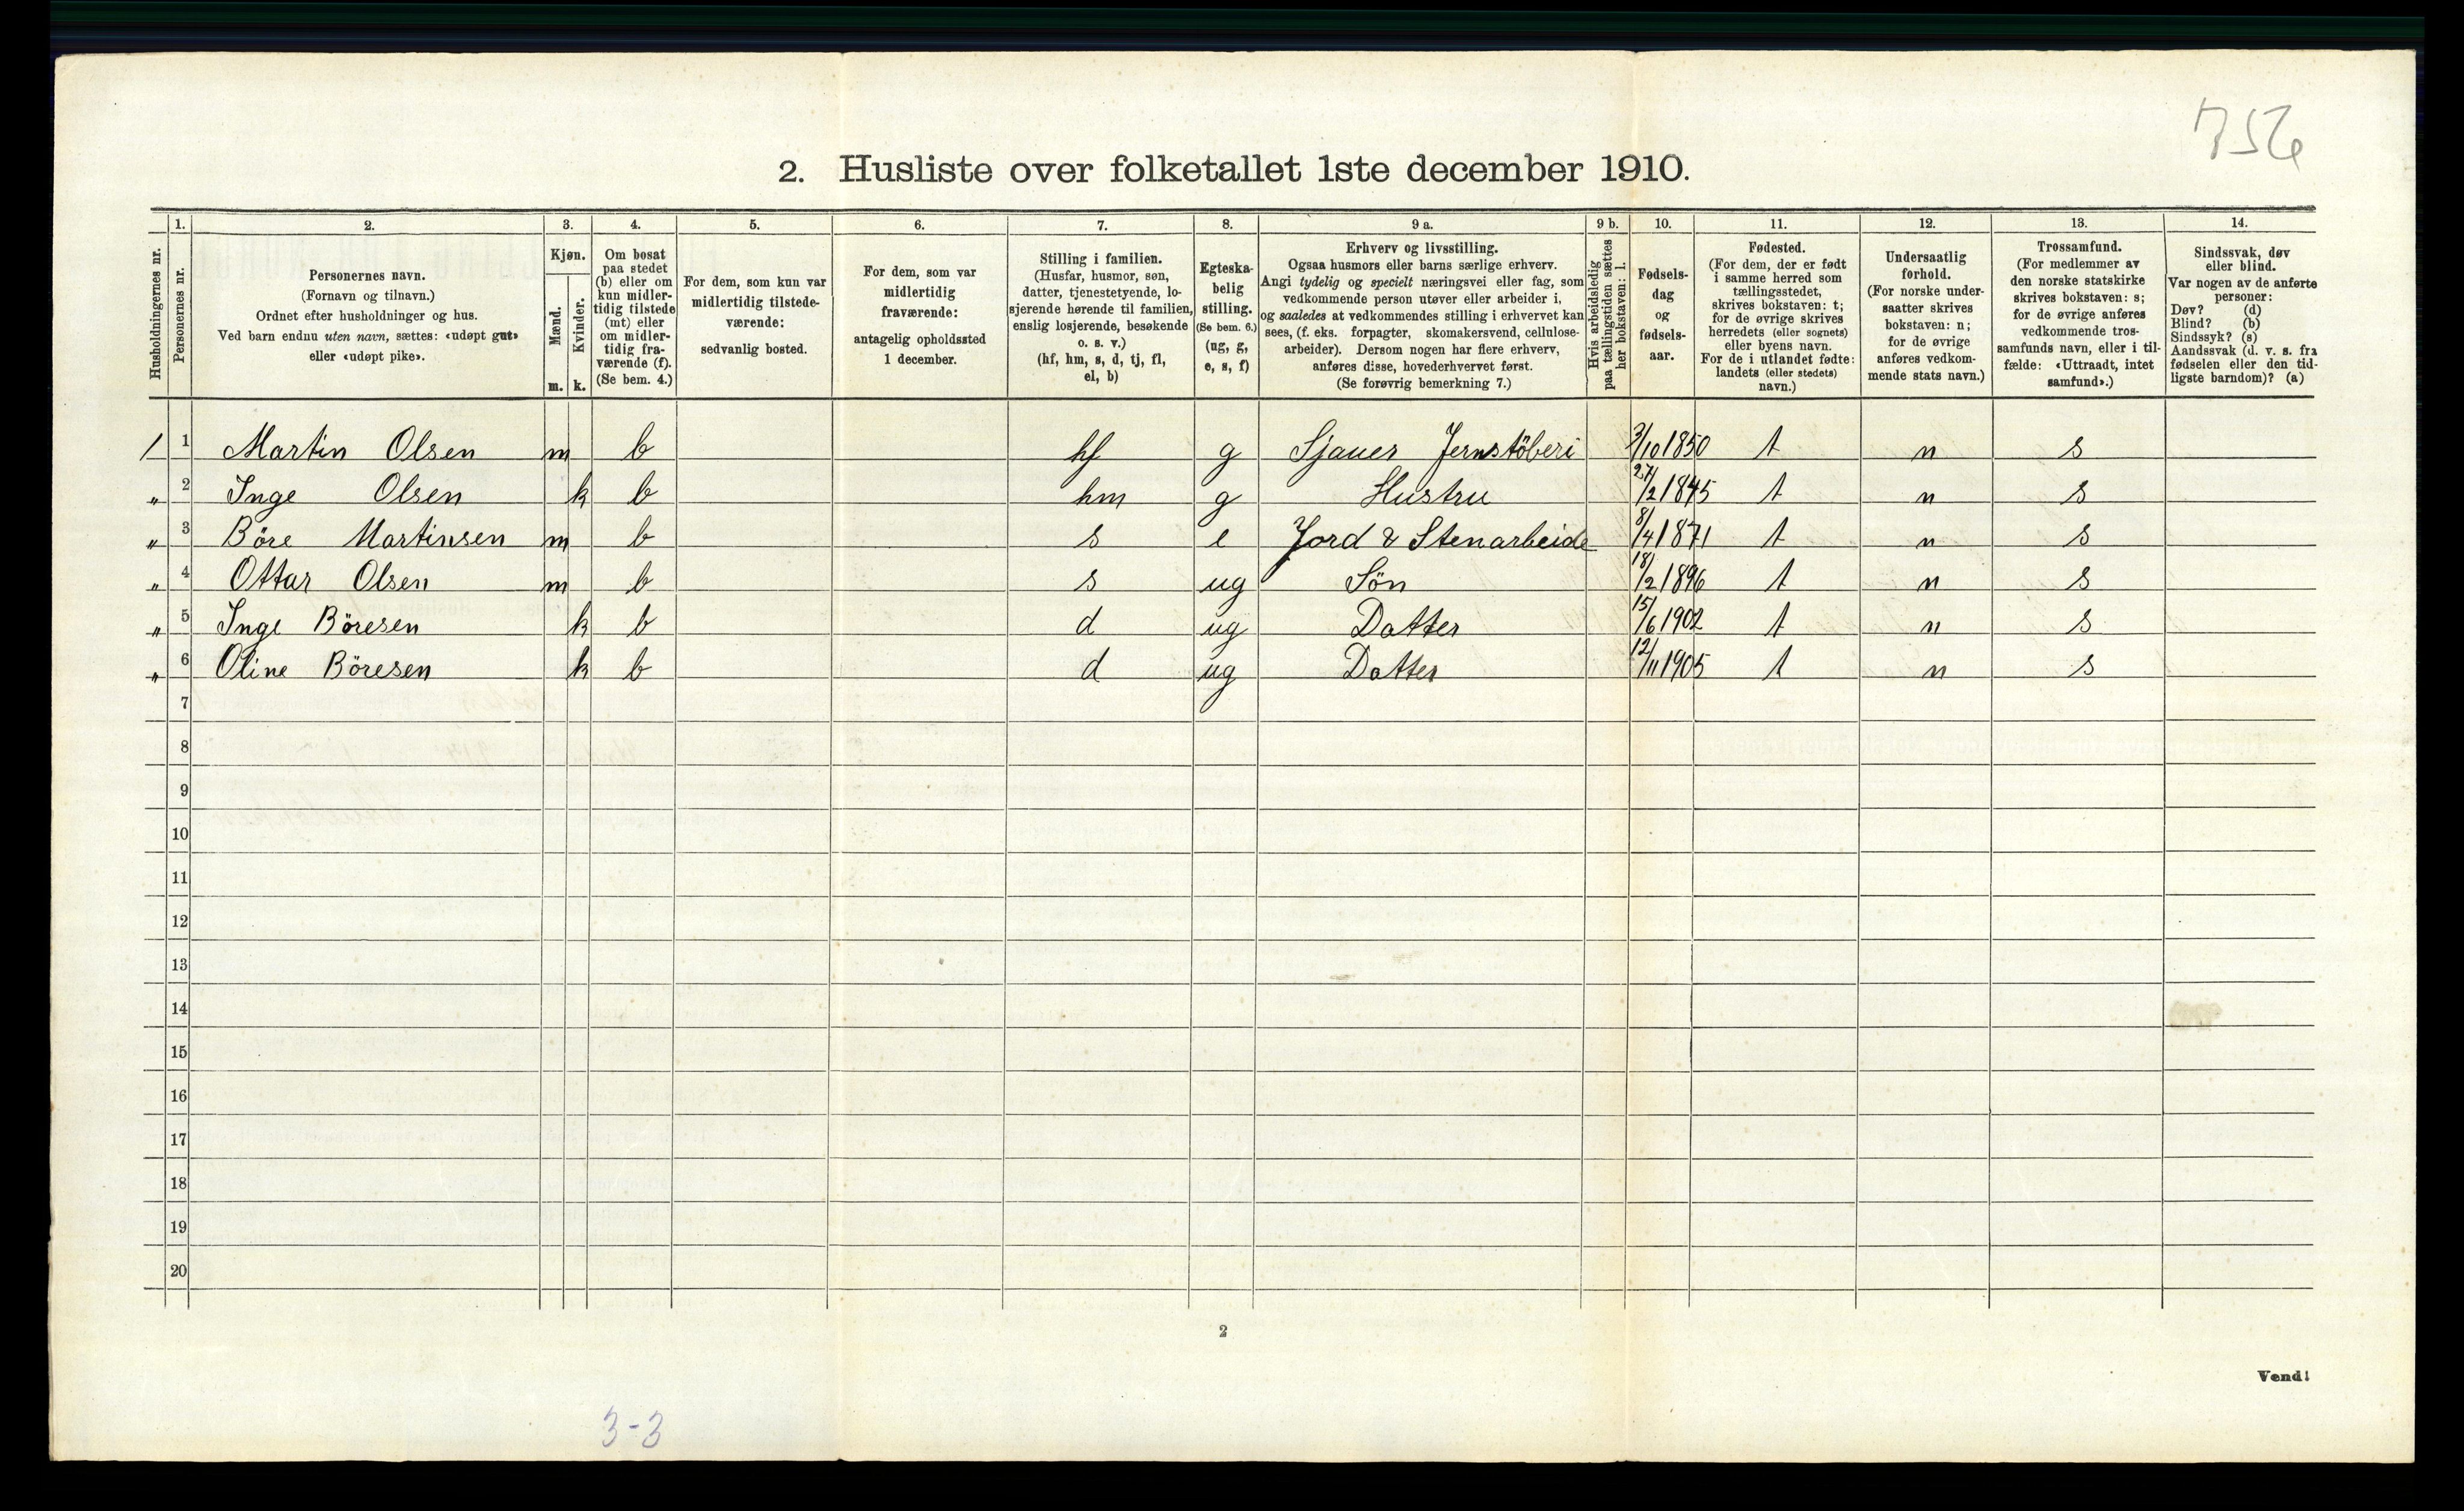 756
2. Husliste over folketallet 1ste december 1910.
Husholdningernes nr.
1.
Personernes nr.
2.
Personernes navn.
(Fornavn og tilnavn.)
Ordnet efter husholdninger og hus.
Ved barn endnu uten navn, sættes: «udøpt gut»
eller «udøpt pike».
3.
Kjøn.
Mænd.
m.
Kvinder.
k.
4.
Om bosat
paa stedet
(b) eller om
kun midler-
tidig tilstede
(mt) eller
om midler-
tidig fra-
værende (f).
(Se bem. 4.)
5.
For dem, som kun var
midlertidig tilstede-
værende:
sedvanlig bosted.
6.
For dem, som var
midlertidig
fraværende:
antagelig opholdssted
1 december.
7.
Stilling i familien.
(Husfar, husmor, søn,
datter, tjenestetyende, lo-
sjerende hørende til familien,
enslig losjerende, besøkende
o. s. v.)
(hf, hm, s, d, tj, fl,
el, b)
8.
Egteska-
belig
stilling.
(Se bem. 6.)
(ug, g,
e, s, f)
9 a.
Erhverv og livsstilling.
Ogsaa husmors eller barns særlige erhverv.
Angi tydelig og specielt næringsvei eller fag, som
vedkommende person utøver eller arbeider i,
og saaledes at vedkommendes stilling i erhvervet kan
sees, (f. eks. forpagter, skomakersvend, cellulose-
arbeider). Dersom nogen har flere erhverv,
anføres disse, hovederhvervet først.
(Se forøvrig bemerkning 7.)
9 b.
Hvis arbeidsledig
paa tællingstiden sættes
her bokstaven: l.
10.
Fødsels-
dag
og
fødsels-
aar.
11.
Fødested.
(For dem, der er født
i samme herred som
tællingsstedet,
skrives bokstaven: t;
for de øvrige skrives
herredets (eller sognets)
eller byens navn.
For de i utlandet fødte:
landets (eller stedets)
navn.)
12.
Undersaatlig
forhold.
(For norske under-
saatter skrives
bokstaven: n;
for de øvrige
anføres vedkom-
mende stats navn.)
13.
Trossamfund.
(For medlemmer av
den norske statskirke
skrives bokstaven: s;
for de øvrige anføres
vedkommende tros-
samfunds navn, eller i til-
fælde: «Uttraadt, intet
samfund».)
14.
Sindssvak, døv
eller blind.
Var nogen av de anførte
personer:
Døv? (d)
Blind? (b)
Sindssyk? (s)
Aandssvak (d. v. s. fra
fødselen eller den tid-
ligste barndom)? (a)
1 1 Martin Olsen m b hf g Sjauer Jernstöberi 3/10 1850 t n s
" 2 Inge Olsen k b hm g Hustru 27/2 1845 t n s
" 3 Böre Martinsen m b s e Jord & Stenarbeide 8/4 1871 t n s
" 4 Ottar Olsen m b s ug Sön 18/2 1896 t n s
" 5 Inge Böresen k b d ug Datter 15/6 1902 t n s
" 6 Oline Böresen k b d ug Datter 12/11 1905 t n s
7
8
9
10
11
12
13
14
15
16
17
18
19
20
2
Vend!
3-3